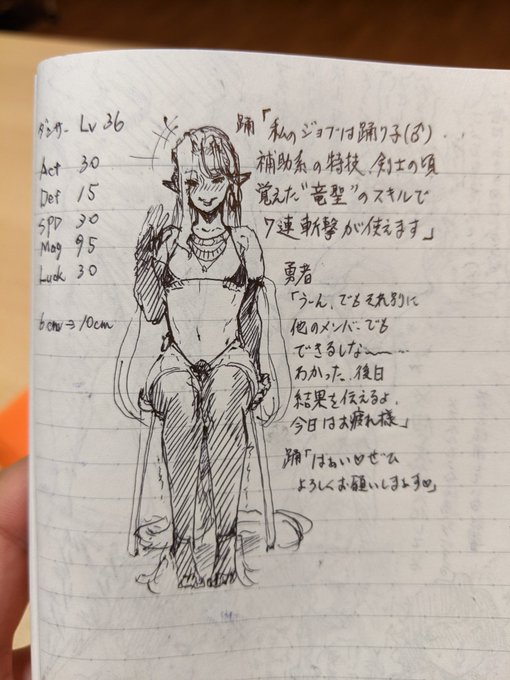 ダンサー Lv 36
Act 30
Def 15
SPD 30
Mag 95
Luck 30
6cm⇒10cm
踊「私のジョブは踊り子(♂)..
補助系の特技、剣士の頃
覚えた"竜聖"のスキルで
7連斬撃が使えます」
勇者
「うーん、でもそれ別に
他のメンバーでも
できるしな〜〜…
わかった、後日
結果を伝えるよ、
今日はお疲れ様」
踊「はぁい♡ぜひ
よろしくお願いします♡」